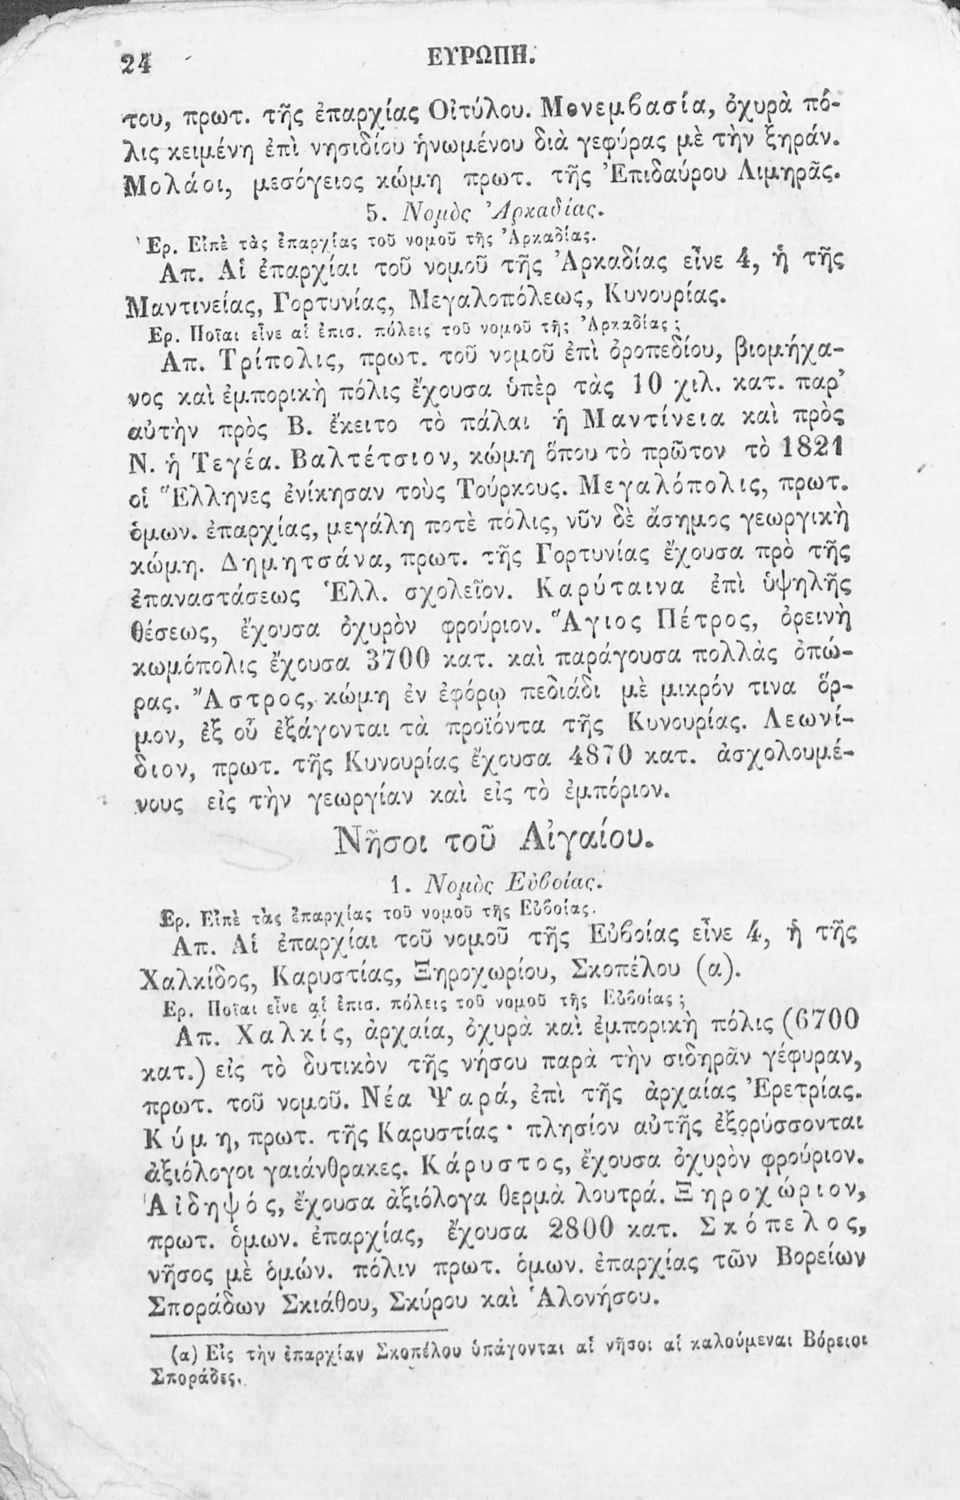 24
ΕΥΡΩΠΗ.
του, πρωτ. τῆς ἐπαρχίας Οἰτύλου. Μονεμβασία, ὀχυρὰ πό-
λις κειμένη ἐπὶ νησιδίου ἡνωμένου διὰ γεφύρας μὲ τὴν ξηράν.
Μολάοι, μεσόγειος κώμη πρωτ. τῆς Ἐπιδαύρου Λιμηρᾶς.
5. Νομὸς Ἀρκαδίας.
Ερ. Εἰπὲ τὰς ἐπαρχίας τοῦ νομοῦ τῆς Ἀρκαδίας.
Απ. Αἱ ἐπαρχίαι τοῦ νομοῦ τῆς Ἀρκαδίας εἶνε 4, ἡ τῆς
Μαντινείας, Γορτυνίας, Μεγαλοπόλεως, Κυνουρίας.
Ερ. Ποῖαι εἶνε αἱ ἐπισ. πόλεις τοῦ νομοῦ τῆς Ἀρκαδίας;
Απ. Τρίπολις, πρωτ. τοῦ νομοῦ ἐπὶ ὀροπεδίου, βιομήχα-
νος καὶ ἐμπορικὴ πόλις ἔχουσα ὑπὲρ τὰς 10 χιλ. κατ. παρ'
αὐτὴν πρὸς Β. ἔκειτο τὸ πάλαι ἡ Μαντίνεια καὶ πρὸς
Ν. ἡ Τεγέα. Βαλτέτσιον, κώμη ὅπου τὸ πρῶτον τὸ 1821
οἱ Ἕλληνες ἐνίκησαν τοὺς Τούρκους. Μεγαλόπολις, πρωτ.
ὁμων. ἐπαρχίας, μεγάλη ποτὲ πόλις, νῦν δὲ ἄσημος γεωργικὴ
κώμη. Δημητσάνα, πρωτ. τῆς Γορτυνίας ἔχουσα πρὸ τῆς
ἐπαναστάσεως Ἑλλ. σχολεῖον. Καρύταινα ἐπὶ ὑψηλῆς
θέσεως, ἔχουσα ὀχυρὸν φρούριον. Ἅγιος Πέτρος, ὀρεινὴ
κωμόπολις ἔχουσα 3700 κατ. καὶ παράγουσα πολλὰς ὀπώ-
ρας. Ἄστρος, κώμη ἐν ἐφόρῳ πεδιάδι μὲ μικρόν τινα ὅρ-
μον, ἐξ οὗ ἐξάγονται τὰ προϊόντα τῆς Κυνουρίας. Λεωνί-
διον, πρωτ. τῆς Κυνουρίας ἔχουσα 4870 κατ. ἀσχολουμέ-
νους εἰς τὴν γεωργίαν καὶ εἰς τὸ ἐμπόριον.
Νῆσοι τοῦ Αἰγαίου.
1. Νομὸς Εὐβοίας.
Ερ. Εἰπὲ τὰς ἐπαρχίας τοῦ νομοῦ τῆς Εὐβοίας.
Απ. Αἱ ἐπαρχίαι τοῦ νομοῦ τῆς Εὐβοίας εἶνε 4, ἡ τῆς
Χαλκίδος, Καρυστίας, Ξηροχωρίου, Σκοπέλου (α).
Ερ. Ποῖαι εἶνε αἱ ἐπισ. πόλεις τοῦ νομοῦ τῆς Εὐβοίας;
Απ. Χαλκίς, ἀρχαία, ὀχυρὰ καὶ ἐμπορικὴ πόλις (6700
κατ.) εἰς τὸ δυτικὸν τῆς νήσου παρὰ τὴν σιδηρᾶν γέφυραν,
πρωτ. τοῦ νομοῦ. Νέα Ψαρά, ἐπὶ τῆς ἀρχαίας Ἐρετρίας.
Κύμη, πρωτ. τῆς Καρυστίας· πλησίον αὐτῆς ἐξορύσσονται
ἀξιόλογοι γαιάνθρακες. Κάρυστος, ἔχουσα ὀχυρὸν φρούριον.
Αἰδηψός, ἔχουσα ἀξιόλογα θερμὰ λουτρά. Ξηροχώριον,
πρωτ. ὁμων. ἐπαρχίας, ἔχουσα 2800 κατ. Σκόπελος,
νῆσος μὲ ὁμών. πόλιν πρωτ. ὁμων. ἐπαρχίας τῶν Βορείων
Σποράδων Σκιάθου, Σκύρου καὶ Ἁλονήσου.
(α) Εἰς τὴν ἐπαρχίαν Σκοπέλου ὑπάγονται αἱ νῆσοι αἱ καλούμεναι Βόρειοι
Σποράδες.